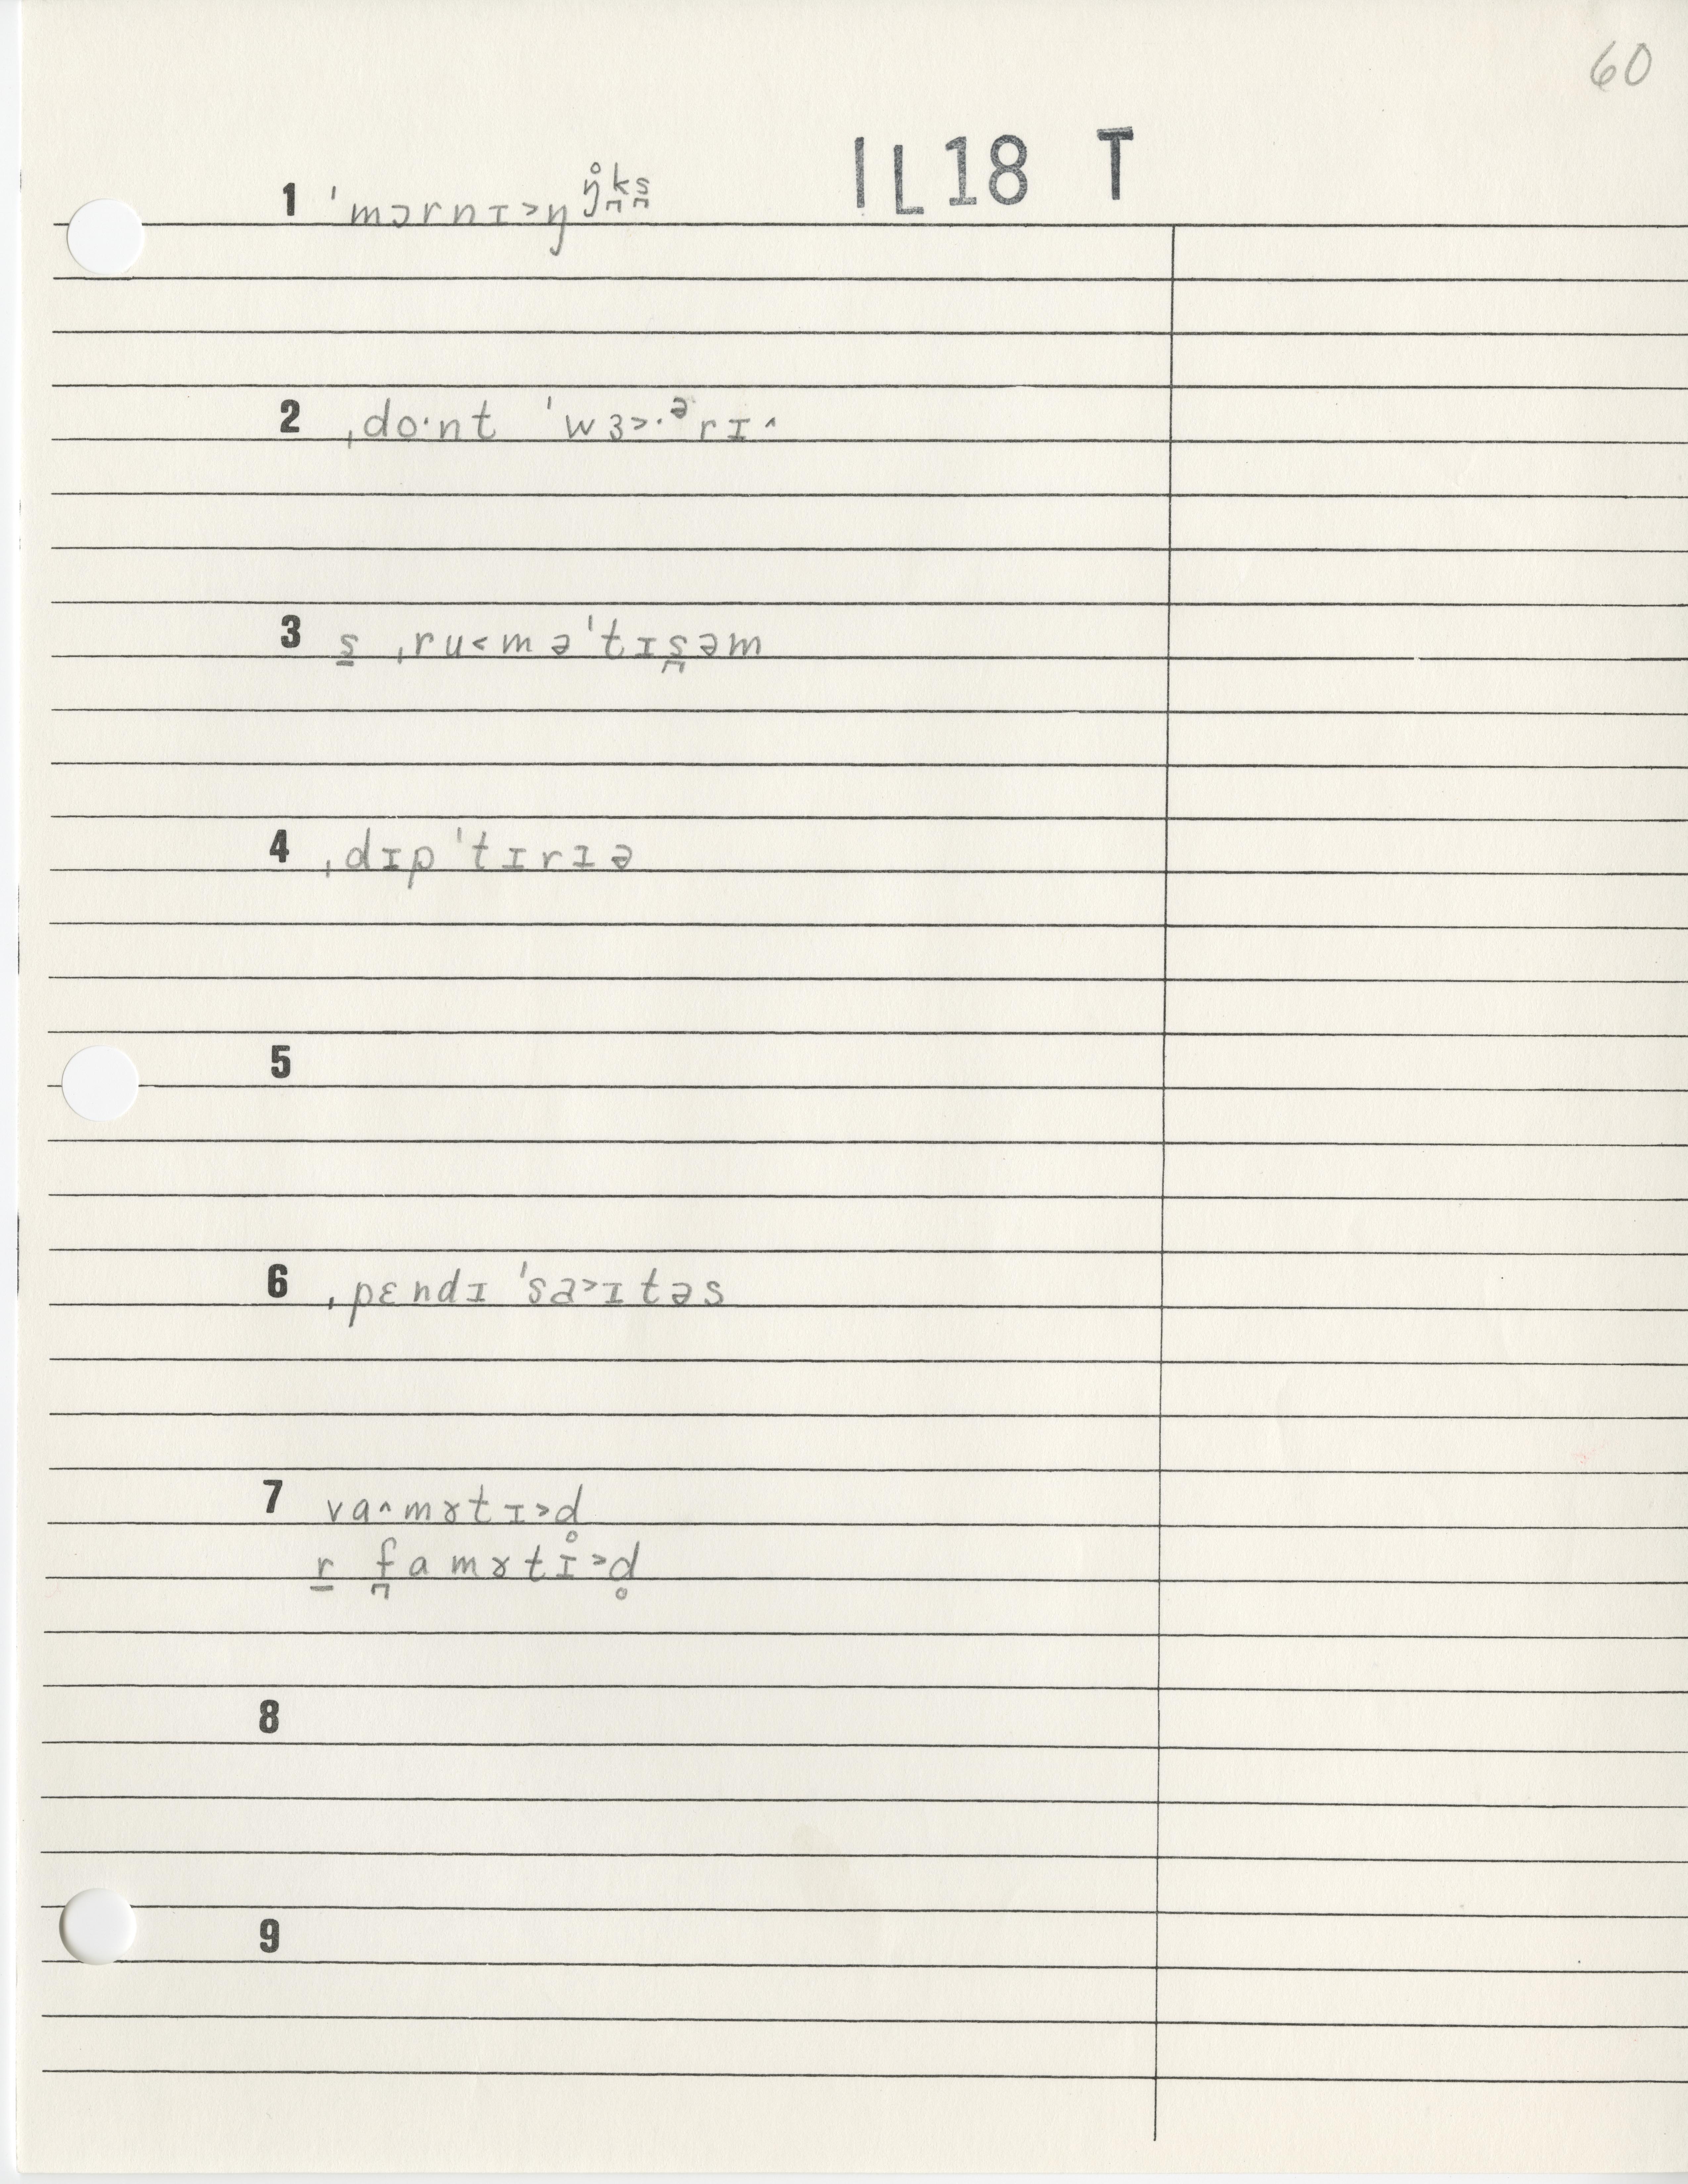 60
IL18 T
1 ˈmɔrnɪ˃ŋ ŋ̊k̪s̪
2 ˌdo·nt ˈwɜ˃·ᵊrɪ˄
3 s̲ ˌru˂məˈtɪs̪əm
4 ˌdɪpˈtɪrɪə
5
6 ˌpɛndɪˈsa˃ɪtəs
7 va˄mɤtɪ˃d̥
r̲ f̪amɤtɪ˃d̥
8
9